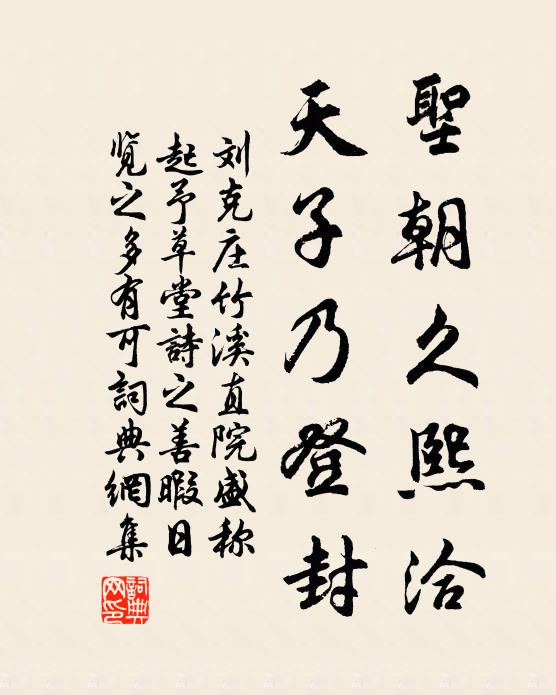 聖朝久熙洽
天子乃登封
刘克庄竹溪直院盛称
起予草堂詩之善暇日
览之多有可詞典網集
詞典網印